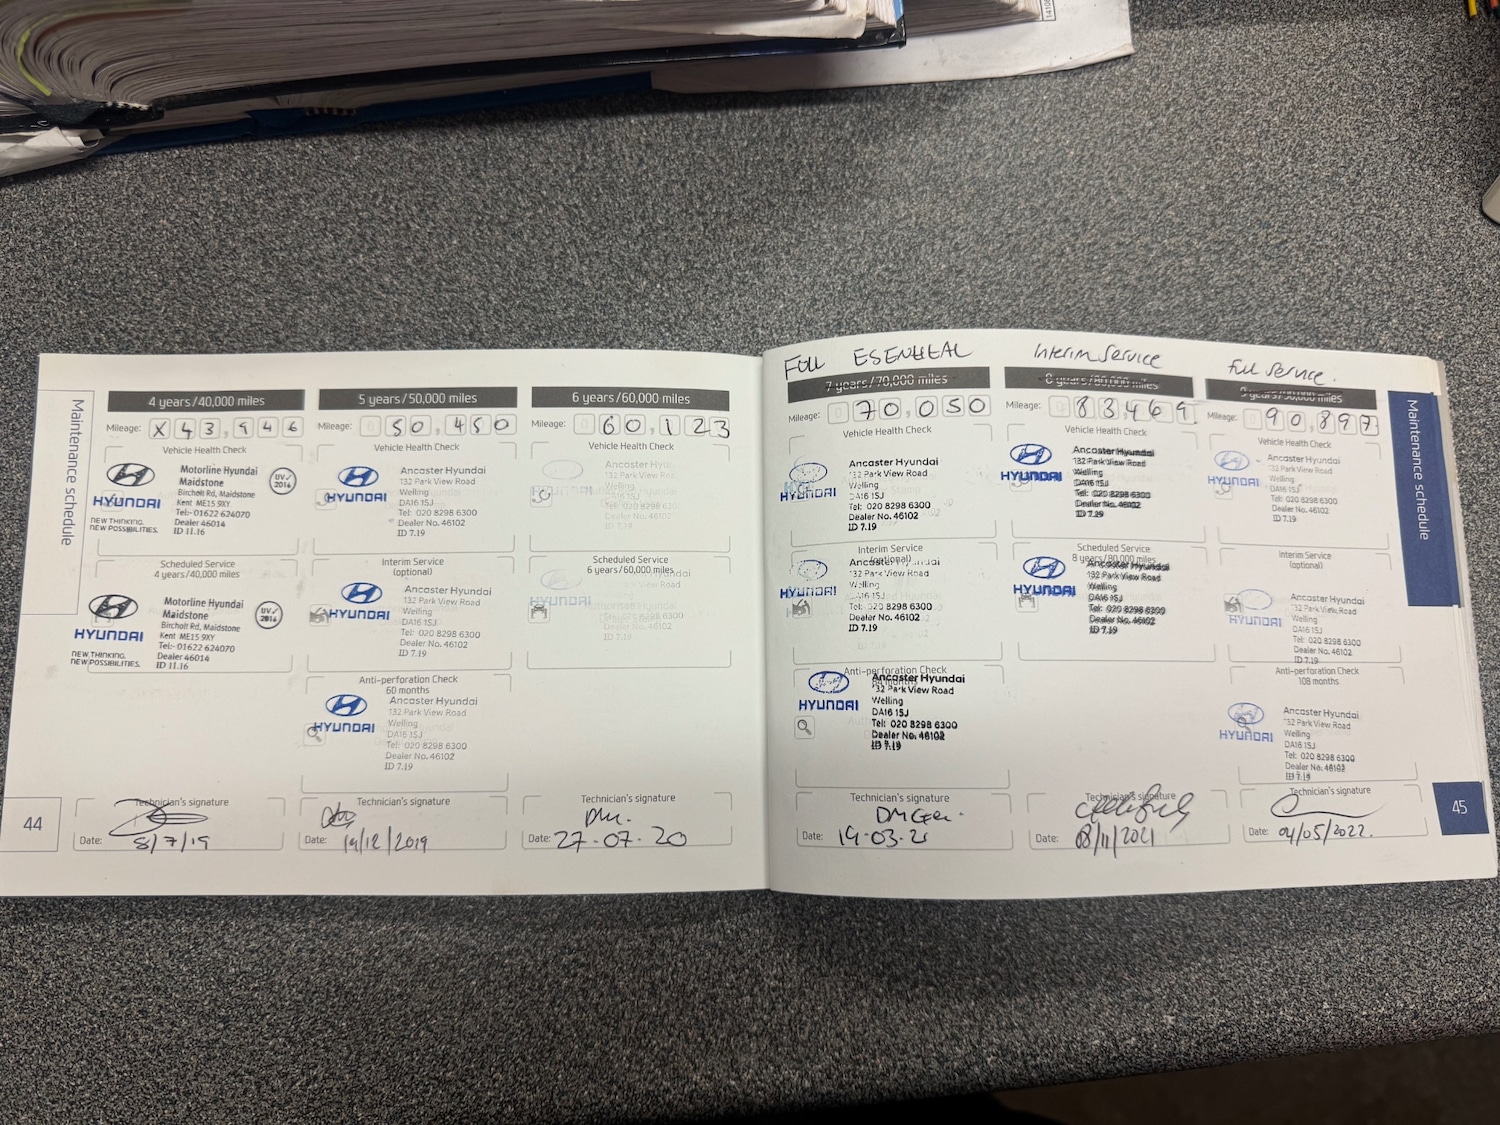 Maintenance schedule
4 years/40,000 miles
Mileage: X 43,946
Vehicle Health Check
HYUNDAI
NEW THINKING.
NEW POSSIBILITIES.
Motorline Hyundai
Maidstone
Bircholt Rd, Maidstone
Kent ME15 9XY
Tel:- 01622 624070
Dealer 46014
ID 11.16
UV✓
2016
Scheduled Service
4 years/40,000 miles
HYUNDAI
NEW THINKING.
NEW POSSIBILITIES.
Motorline Hyundai
Maidstone
Bircholt Rd, Maidstone
Kent ME15 9XY
Tel:- 01622 624070
Dealer 46014
ID 11.16
UV✓
2016
Technician's signature
Date: 8/7/19
44
5 years/50,000 miles
Mileage: 50,450
Vehicle Health Check
HYUNDAI
Ancaster Hyundai
132 Park View Road
Welling
DA16 1SJ
Tel: 020 8298 6300
Dealer No. 46102
ID 7.19
Interim Service
(optional)
HYUNDAI
Ancaster Hyundai
132 Park View Road
Welling
DA16 1SJ
Tel: 020 8298 6300
Dealer No. 46102
ID 7.19
Anti-perforation Check
60 months
HYUNDAI
Ancaster Hyundai
132 Park View Road
Welling
DA16 1SJ
Tel: 020 8298 6300
Dealer No. 46102
ID 7.19
Technician's signature
Date: 19/12/2019
6 years/60,000 miles
Mileage: 60,123
Vehicle Health Check
HYUNDAI
Ancaster Hyundai
132 Park View Road
Welling
DA16 1SJ
Tel: 020 8298 6300
Dealer No. 46102
ID 7.19
Scheduled Service
6 years/60,000 miles
HYUNDAI
Park View Road
Technician's signature
Date: 27-07-20
FULL ESENHEAL
7 years/70,000 miles
Mileage: 70,050
Vehicle Health Check
HYUNDAI
Ancaster Hyundai
132 Park View Road
Welling
DA16 1SJ
Tel: 020 8298 6300
Dealer No. 46102
ID 7.19
Interim Service
(optional)
HYUNDAI
Ancaster Hyundai
132 Park View Road
Welling
DA16 1SJ
Tel: 020 8298 6300
Dealer No. 46102
ID 7.19
Anti-perforation Check
HYUNDAI
Ancaster Hyundai
132 Park View Road
Welling
DA16 1SJ
Tel: 020 8298 6300
Dealer No. 46102
ID 7.19
Technician's signature
Date: 19-03-21
Interim Service
8 years/80,000 miles
Mileage: 83,469
Vehicle Health Check
HYUNDAI
Ancaster Hyundai
132 Park View Road
Welling
DA16 1SJ
Tel: 020 8298 6300
Dealer No. 46102
ID 7.19
Scheduled Service
8 years/80,000 miles
HYUNDAI
Ancaster Hyundai
132 Park View Road
Welling
DA16 1SJ
Tel: 020 8298 6300
Dealer No. 46102
ID 7.19
Technician's signature
Date: 08/11/2021
Full Service.
9 years/90,000 miles
Mileage: 90,897
Vehicle Health Check
HYUNDAI
Ancaster Hyundai
132 Park View Road
Welling
DA16 1SJ
Tel: 020 8298 6300
Dealer No. 46102
ID 7.19
Interim Service
(optional)
HYUNDAI
Ancaster Hyundai
132 Park View Road
Welling
DA16 1SJ
Tel: 020 8298 6300
Dealer No. 46102
ID 7.19
Anti-perforation Check
108 months
HYUNDAI
Ancaster Hyundai
132 Park View Road
Welling
DA16 1SJ
Tel: 020 8298 6300
Dealer No. 46102
ID 7.19
Technician's signature
Date: 04/05/2022.
Maintenance schedule
45